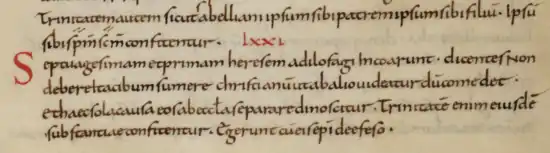 Trinitatem autem sicut sabelliani ipsum sibi patrem ipsum sibi filiū. Ipsū
sibi spm̄ scm̄ confitentur. lxxi
Septuagesimam et primam heresem adilofagi incoarunt. dicentes non
debere tac ibum sumere christianū ut ab alio videatur dū comedet.
et haec sola causa eos ab eccla separare dinoscitur. Trinitatē enim eiusdē
substantiae confitentur. egerunt cū